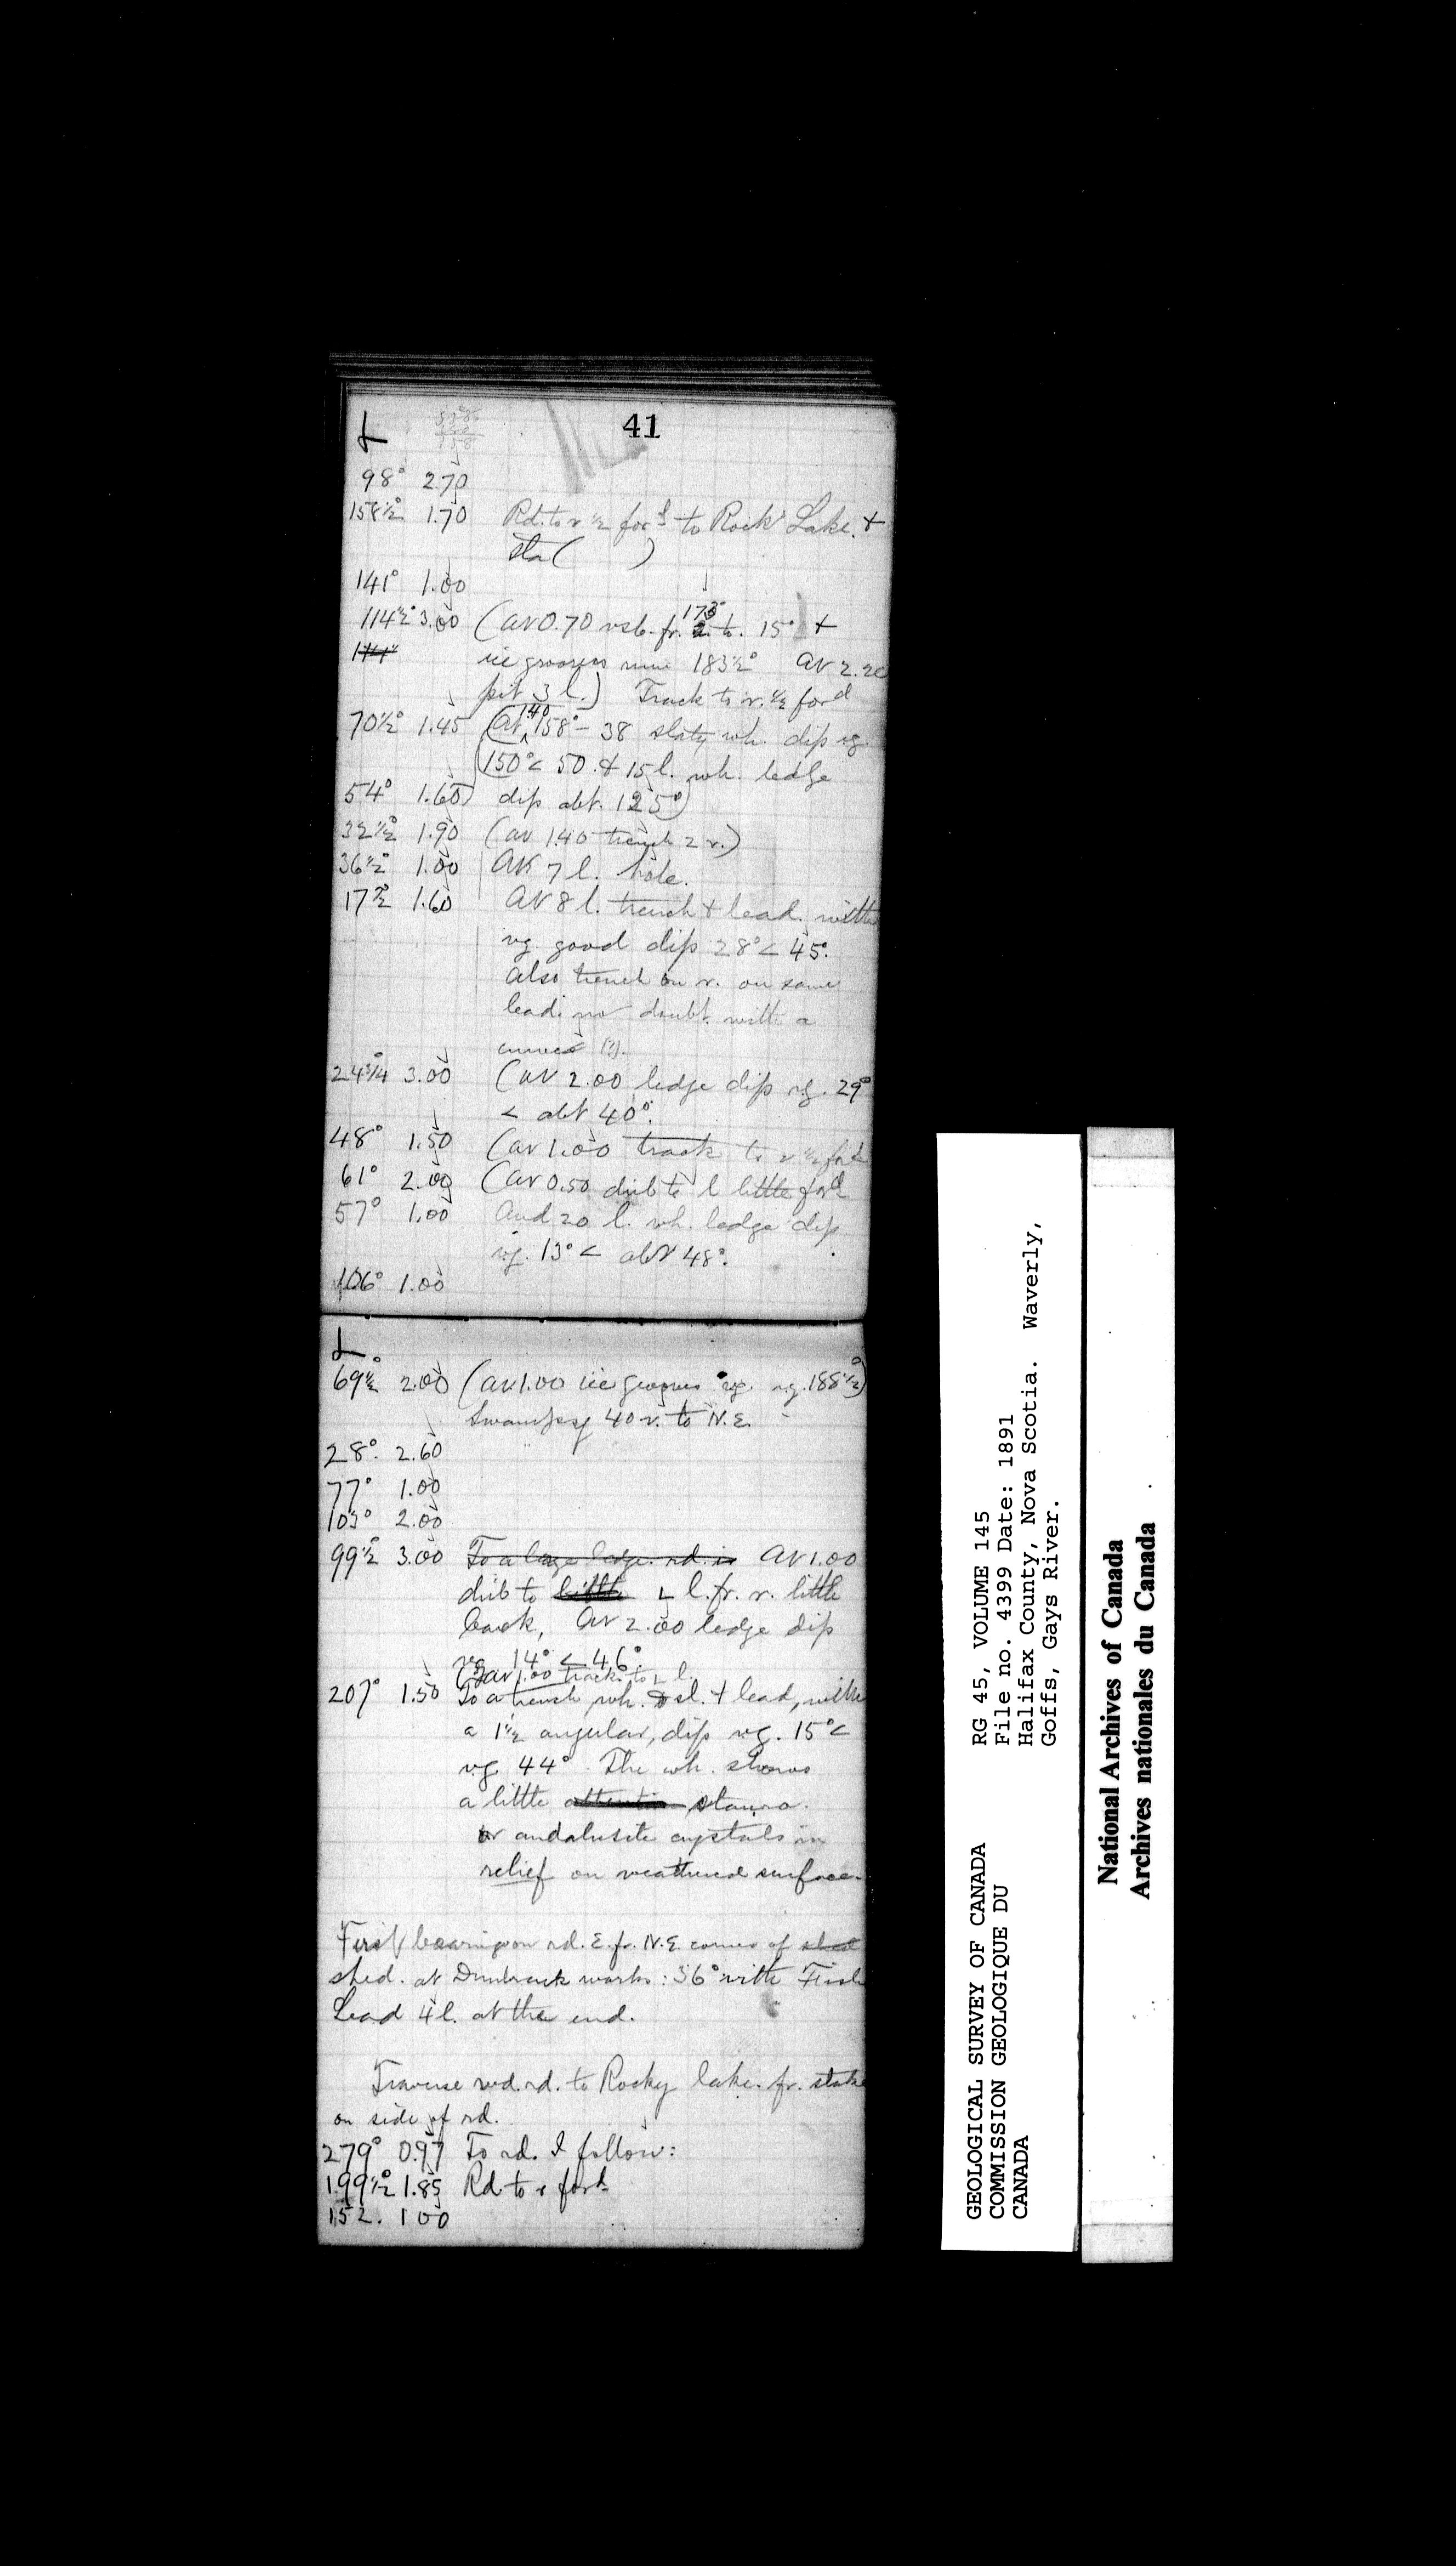 41
98° 2.70
158½° 1.70 Rd. to r ½ ford to Rock Lake. +
sta ( )
141° 1.00
114½° 3.00 (at 0.70 vsb. fr. 173° to. 15° +
ice grooves run 183½° at 2.20
pit 3 l.) Track to r. ½ ford
70½° 1.45 (at 140 158° - 38 slaty wh. dip vg.
150° < 50. & 15 l. wh. ledge
54° 1.60 dip abt. 125°)
32½° 1.90 (at 1.40 trench 2 r.)
36½° 1.00 At 7 l. hole.
17½° 1.60 At 8 l. trench & lead. with
vg. good dip 28° < 45°.
Also trench on r. on same
lead. no doubt. with a
(?).
24¾° 3.00 (at 2.00 ledge dip vg. 29°
< abt 40°.
48° 1.50 (at 1.00 track to r ½ ford
61° 2.00 (at 0.50 to l little ford
57° 1.00 And 20 l. wh. ledge dip
vg. 13° < abt 48°.
106° 1.00
69½° 2.00 (at 1.00 ice grooves vg. vg. 188½°)
Swampy 40 r. to N.E.
28°. 2.60
77° 1.00
103° 2.00
99½° 3.00 To a large ledge. rd. is At 1.00
to little L l. fr. r. little
back, At 2.00 ledge dip
vg. 14° < 46°
(at 1.00 track to L l.
207° 1.50 To a trench wh. & sl. + lead, with
a 1½ angular, dip vg. 15° <
vg. 44°. The wh. shows
a little stauro.
or andalusite crystals in
relief on weathered surface.
First bearing on rd. E. fr. N.E. corner of shed
shed. at Dunbrack works: 36° with
Lead 4 l. at the end.
Traverse wd. rd. to Rocky lake. fr. stake
on side of rd.
279° 0.97 To rd. I follow:
199½° 1.85 Rd. to r ford
152. 1 00
GEOLOGICAL SURVEY OF CANADA
COMMISSION GEOLOGIQUE DU
CANADA
RG 45, VOLUME 145
File no. 4399 Date: 1891
Halifax County, Nova Scotia. Waverly,
Goffs, Gays River.
National Archives of Canada
Archives nationales du Canada